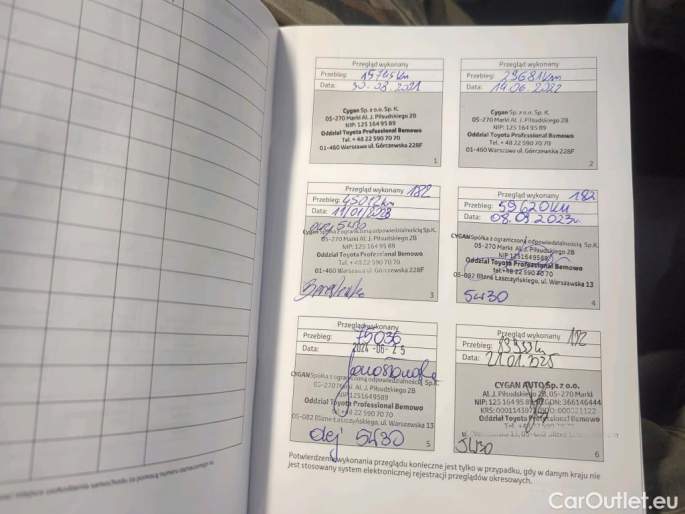 Przegląd wykonany
Przebieg: 15745km
Data: 30-08.2021
Cygan Sp. z o.o. Sp. K.
05-270 Marki Al. J. Piłsudskiego 2B
NIP: 125 164 95 89
Oddział Toyota Professional Bemowo
Tel. + 48 22 590 70 70
01-460 Warszawa ul. Górczewska 228F
1
Przegląd wykonany
Przebieg: 29681km
Data: 14.06.2022
Cygan Sp. z o.o. Sp. K.
05-270 Marki Al. J. Piłsudskiego 2B
NIP: 125 164 95 89
Oddział Toyota Professional Bemowo
Tel. + 48 22 590 70 70
01-460 Warszawa ul. Górczewska 228F
2
Przegląd wykonany 182
Przebieg: 45012km
Data: 11/01/2023
olej 5W30
Cygan Spółka z ograniczoną odpowiedzialnością Sp.K.
05-270 Marki Al. J. Piłsudskiego 2B
NIP: 125 164 95 89
Oddział Toyota Professional Bemowo
Tel. + 48 22 590 70 70
01-460 Warszawa ul. Górczewska 228F
3
Przegląd wykonany 182
Przebieg: 59620km
Data: 08.09.2023r
CYGAN Spółka z ograniczoną odpowiedzialnością Sp.K.
05-270 Marki Al. J. Piłsudskiego 2B
NIP 1251649589
Oddział Toyota Professional Bemowo
tel.+48 22 590 70 70
05-082 Blizne Łaszczyńskiego, ul. Warszawska 13
5W30
4
Przegląd wykonany
Przebieg: 75036
Data: 2024-06-25
CYGAN Spółka z ograniczoną odpowiedzialnością Sp.K.
05-270 Marki Al. J. Piłsudskiego 2B
NIP 1251649589
Oddział Toyota Professional Bemowo
22 590 70 70
05-082 Blizne Łaszczyńskiego, ul. Warszawska 13
olej 5W30
5
Przegląd wykonany 182
Przebieg:
Data: 21.01.2025
CYGAN AUTO Sp. z o.o.
Al. J. Piłsudskiego 2B, 05-270 Marki
NIP: 125 164 95 89 REGON: 366146444
Oddział Toyota Professional Bemowo
5W30
6
Potwierdzenie wykonania przeglądu konieczne jest tylko w przypadku, gdy w danym kraju nie
jest stosowany system elektronicznej rejestracji przeglądów okresowych.
CarOutlet.eu